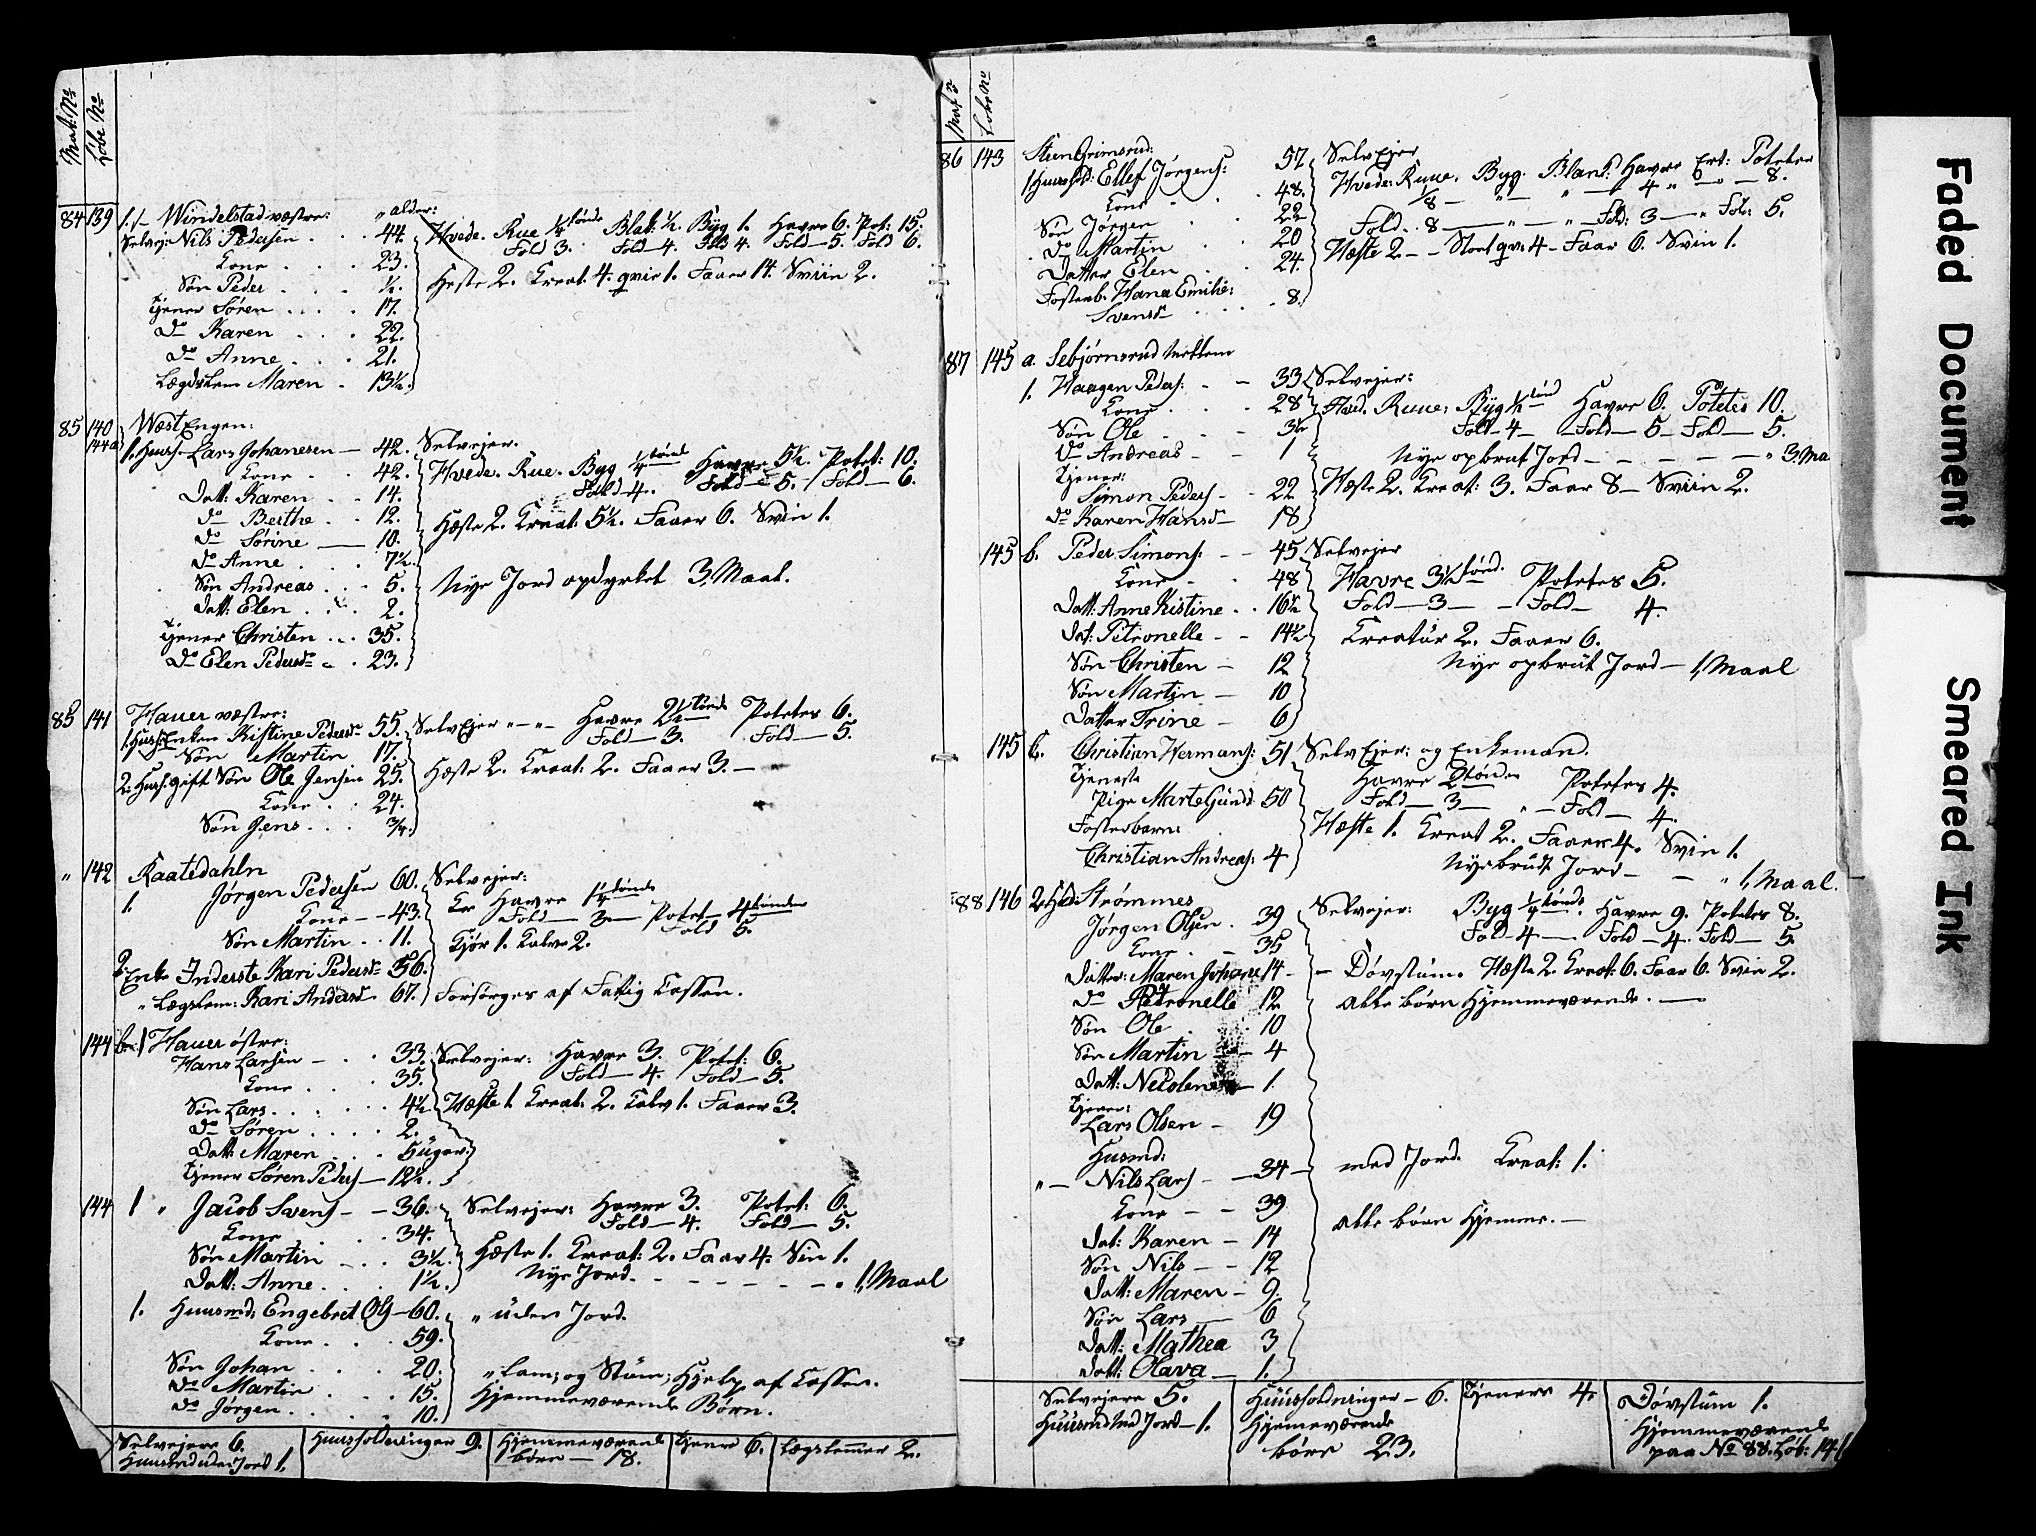 Mat: No
Løbe No
84 139 1./– Windelstad vestre: " alder:
Selvej: Nils Pedersen . . . 44. Hvede. Rue ¼ tønde Blak: ½. Byg 1. Havre 6. Pot: 15.
Kone . . . 23. Fold 3. Fold 4. Fold 4. Fold 5. Fold 6.
Søn Peder . . . ½. Heste 2. Kreat: 4. qvie 1. Faarer 14. Sviin 2.
Tjener Søren . . . 17.
do Karen . . . 22.
do Anne . . . 21.
Lægdslem Maren . 13½.
85 140 West Engen:
144a 1. Huush. Lars Johanesen — 42. Selvejer.
Kone . . 42. Hvede. Rue. Byg ¼ tønde Havre 5½. Potet: 10.
Datt: Karen . . 14. Fold 4. Fold – 5. Fold – 6.
do Berthe . . 12. Heste 2. Kreat: 5½. Faarer 6. Svin 1.
do Sørine — 10.
do Anne . . . 7½.
Søn Andreas . . . 5. Nye Jord opdyrket 3. Maal.
Datt: Elen . . . 2.
Tjener Christen . . . 35.
do Elen Pedersd . . 23.
85 141 Hauer vestre:
1. Huush Enken Kistine Pedersd 55. SelvEjer "–"– Havre 2½ tønde Potetes 6.
Søn Martin 17. Fold – 3. Fold – 5.
2. Hush. gift Søn Ole Jensen 25. Heste 2. Kreat: 2. Faarer 3. —
Kone . . 24.
Søn Jens . . . ¾.
" 142 Kaatedahln
1. Jørgen Pedersen 60. Selvejer:
Kone – – 43. Havre 1¼ tønde Potet 4 tønder
Søn Martin . . 11. Fold — 3 — Fold 5.
Kjør 1. Kalve 2.
2. Enke Inderste Kari Pedersd 56.
" Lægslem: Kari Andersd 67. Forsørges af Fattig Cassen.
144 b. 1 Hauer østre:
Hans Larsen – . . 33. Selvejer: Havre 3. Potet: 6.
Kone . . . 35. Fold – 4. Fold – 5.
Søn Lars . . . . . 4½. Hæste 1. Kreat: 2. Kalv 1. Faarer 3.
do Søren . . . . 2.
Datt: Maren . . . 5 üger.
Tjener Søren Peders — 12½.
144 1 " Jacob Svens – – 36. Selvejer: Havre 3. Potet: 6.
Kone . . . 34. Fold – 4. Fold – 5.
Søn Martin – . . 3½. Hæste 1. Kreat: 2. Faar 4. Svin 1.
Datt: Anne . . . 1½. Nye Jord. – – – – – – . 1, Maal
1. Huusmd: Engebret Ols – 60. " üden Jord.
Kone . . . 59.
Søn Johan . . . . 20. " Lam; og Stüm; Hjelp af Cassen.
do Martin . . . 15. Hjemmeværende Børn.
do Jørgen . . . . 10.
Selvejere 6. Huusholdninger 9. Hjemmeværende Tjenere 6. Lægslemer 2.
Huusmd uden Jord 1. børn — 18.
Mat:
Løbe No
86 143 Steen Grimsrud:
1 Huushd: Ellef Jørgens: 57 SelvEjer
Kone . . . 48. Hvede: Ruue. Byg: Bland: Havre Ert: Poteter
Søn Jørgen . . . 22 ⅛ – " – " – 4 " 6 " – 8.
do Martin . . 20 Fold.. 8 — " – " – Fold: 3 — " Fol: 5.
Datter Elen . . 24. Hæste 2 – – Stort qv: 4 – Faar 6. Svin 1.
Fosterb. Hana Emilie:
Svensd . . . . . 8.
87 145 a. Sebjørnsrud mellem
1. Haagen Peders: – – 33 Selvejer:
Kone . . . 28 Hved. Ruue: Byg ½ tønd Havre 6. Potetes 10.
Søn Ole . . . 3½ Fold – 4 – Fold – 5 – Fold – 5.
do Andreas – – 1 Nye opbrut Jord – – – – – " 3. Ma
Tjener:
Simon Peders – – 22 Hæste 2. Kreat: 3. Faar 8 – Sviin 2.
do Karen Hansd – 18
145 b. Peder Simons: – – 45 Selvejer
Kone – . . 48 Havre 3½ tønd. Potetes 5.
Datt: Anne Kistine . . 16½ Fold – 3 – – Fold – 4.
Dat: Petronelle – – 14½ Kreatür 2. Faarer 6.
Søn Christen – 12 Nye opbrüt Jord – 1, Maal
Søn Martin – 10
Datter Trine – 6
145 c. Christian Hermans: 51 SelvEjer: og Enkemand.
Tjeneste Havre 2 tønder Potetes 4.
Pige Marte Gunds: 50 Fold – 3 – " – Fold – 4.
Fosterbarn: Hæste 1. Kreat 2. Faarer 4. Svin 1.
Christian Andreas: 4 Nyebrüdt Jord – – " 1, Maal.
88 146 2. Hd: Strømnes
Jørgen Olsen . 39 Selvejer: Byg ¼ tønde. Havre 9. Potetes 8.
Kone . – 35 Fold 4 — Fold – 4. Fold – 5
Datter: Maren Johane 14 – – Døvstum. Hæste 2. Kreat: 6. Faar 6. Svin 2.
do Petronelle 12 alle børn Hjemmeværende. —
Søn Ole . . . 10
Søn Martin – – 4
Datt: Nicolene – 1.
Tjener:
Lars Olsen – 19
Husmd:
" – Nils Lars – – 34 – med Jord. Kreat: 1.
Kone – – 39
Dat: Karen – 14 alle børn Hjemme. —
Søn Nils – – 12
Datt: Maren – 9.
Søn Lars — 6
Datt: Mathea 3
Datt: Olava – 1.
Selvejere 5. Huusholdninger – 6. Tjenere 4. Døvstüm 1.
Huusmd med Jord – 1. Hjemeværende Hjemmeværende
børn 23. paa No 88. Løb: 14
Faded Document
Smeared Ink